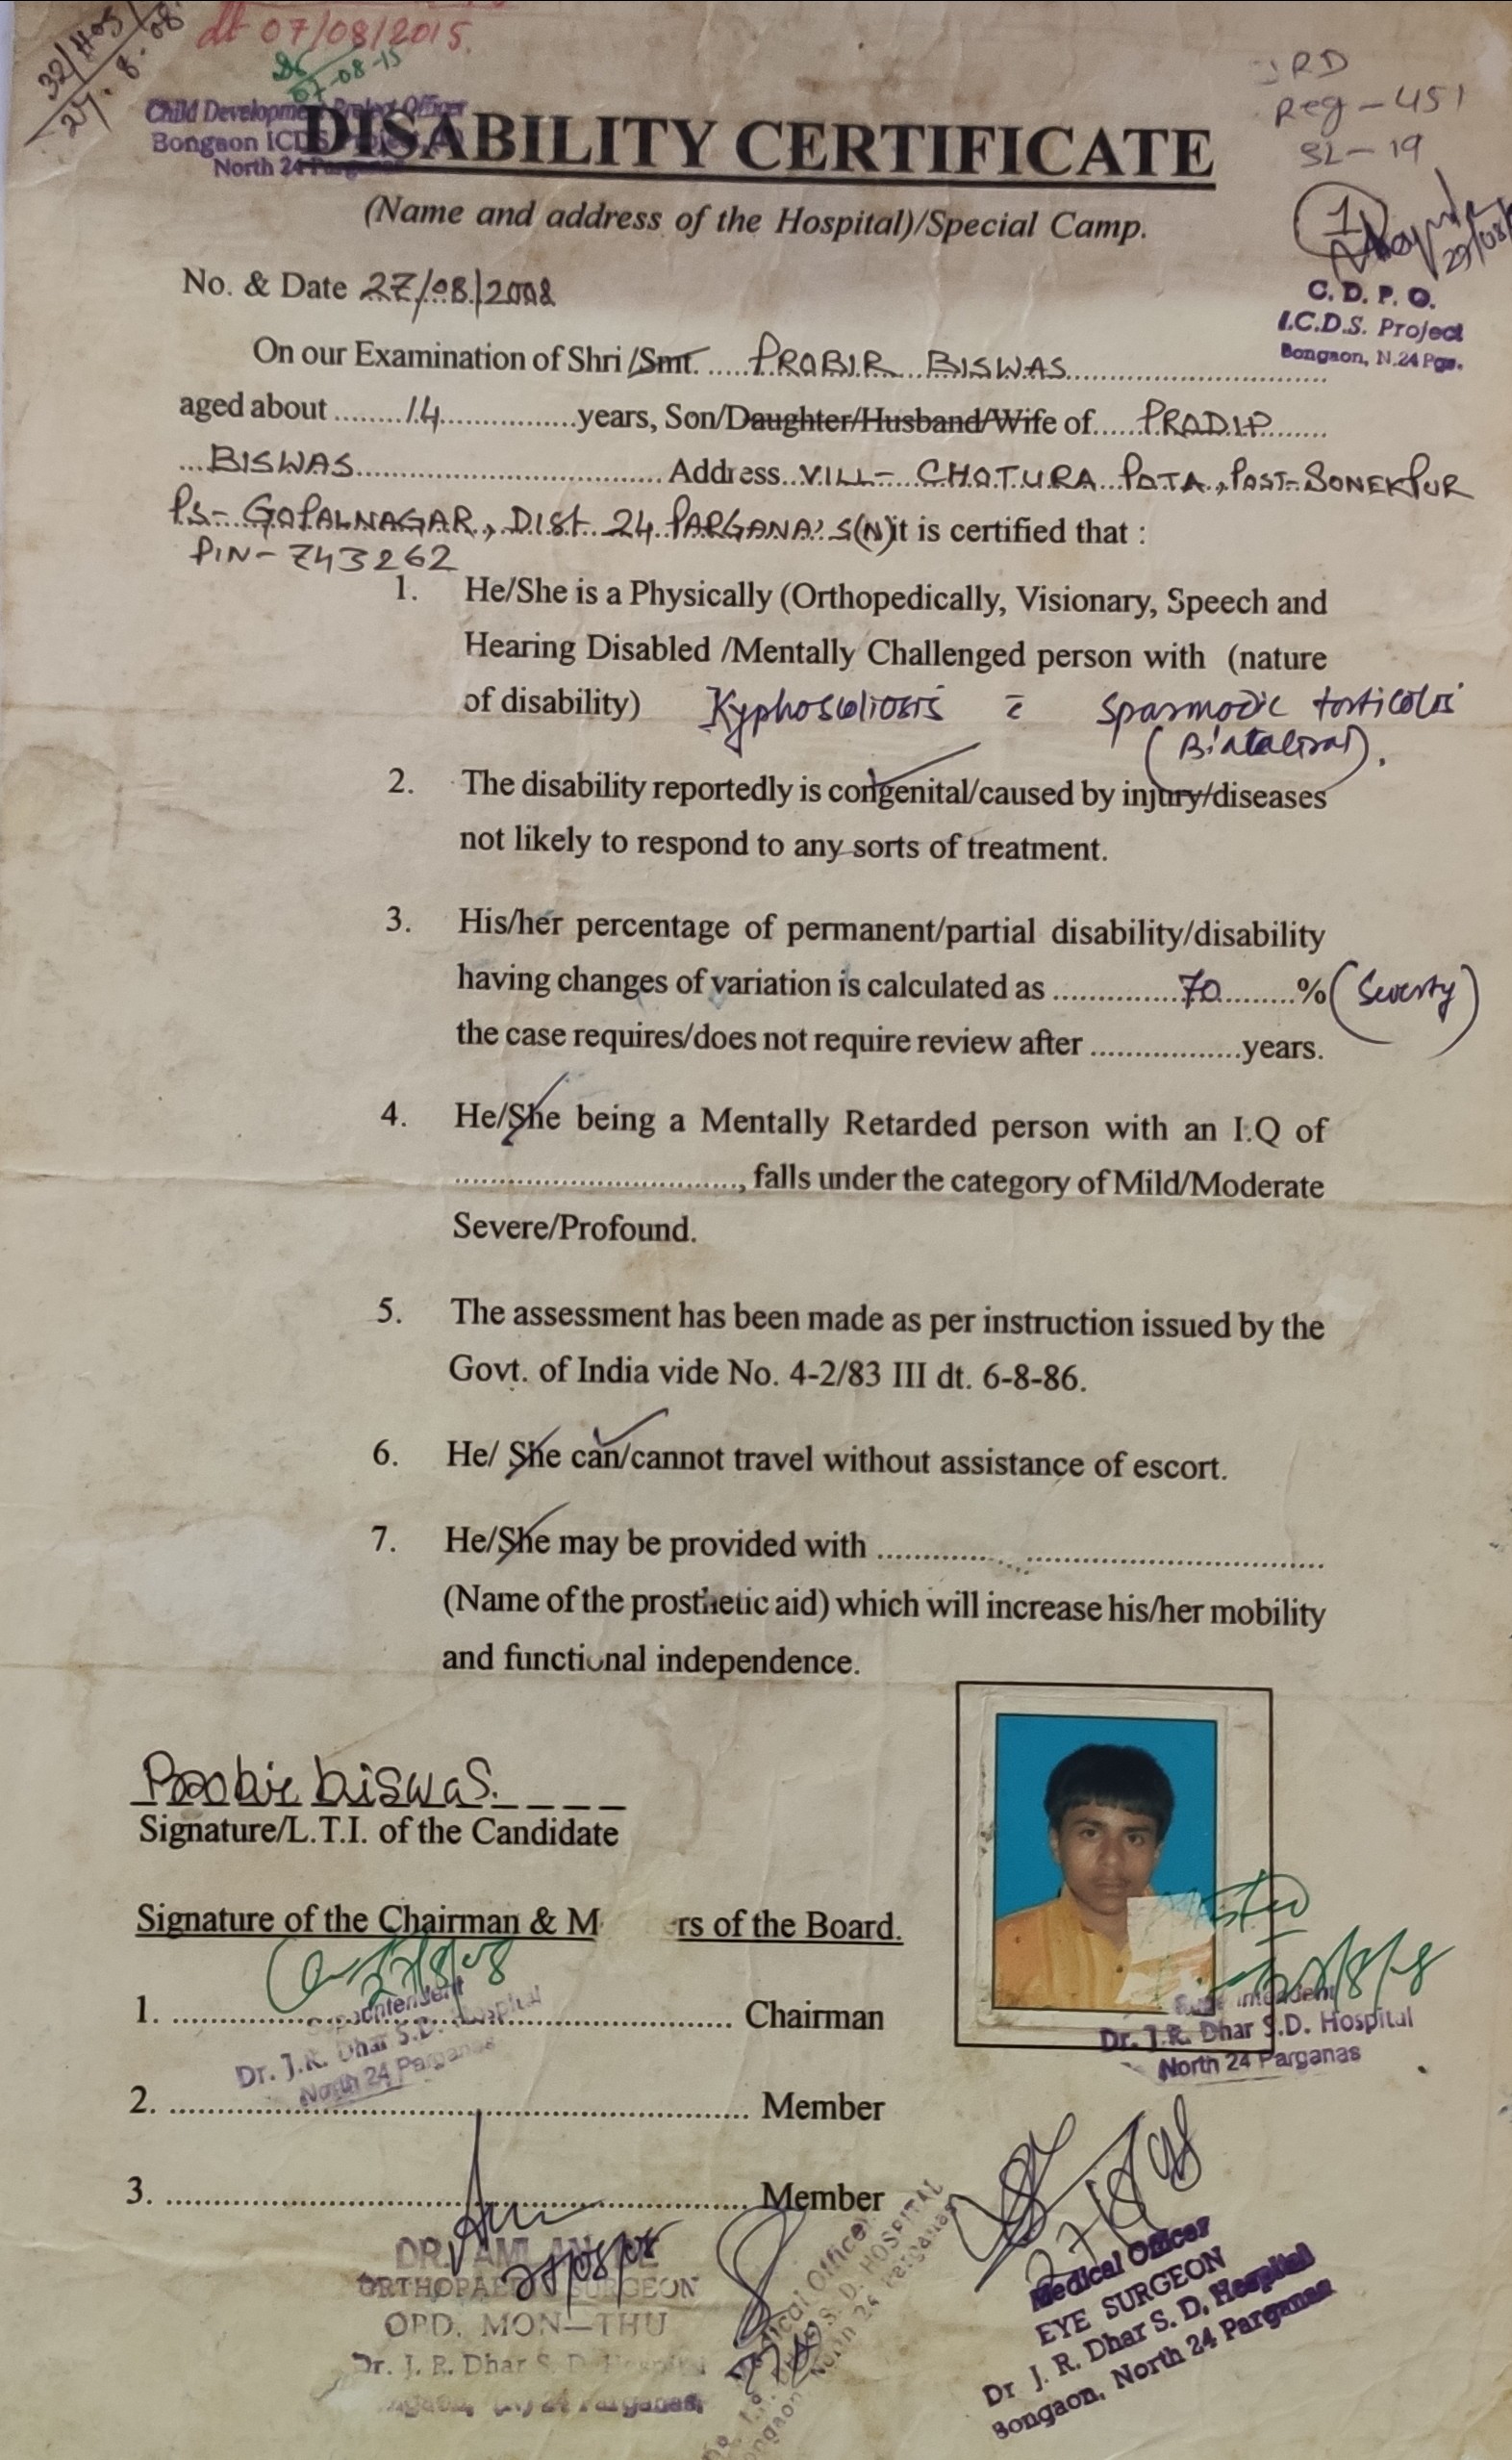 32/Hos
27.8.08
dt 07/08/2015.
07-08-15
Child Development Project Officer
Bongaon ICDS
North 24 Parganas
DISABILITY CERTIFICATE
Reg - 451
SL - 19
(Name and address of the Hospital)/Special Camp.
1
C. D. P. O.
I.C.D.S. Project
Bongaon, N.24 Pgs.
No. & Date 27/08/2008
On our Examination of Shri /Smt. PROBIR BISWAS
aged about 14 years, Son/Daughter/Husband/Wife of PRODIP
BISWAS Address VILL- CHOTURA POTA, POST- SONEKPUR
PS- GOPALNAGAR, DIST. 24 PARGANA'S(N) it is certified that :
PIN- 743262
1. He/She is a Physically (Orthopedically, Visionary, Speech and
Hearing Disabled /Mentally Challenged person with (nature
of disability) Kyphoscoliosis c̄ spasmodic torticolis
(Bilateral).
2. The disability reportedly is congenital/caused by injury/diseases
not likely to respond to any sorts of treatment.
3. His/her percentage of permanent/partial disability/disability
having changes of variation is calculated as 70 % (Seventy)
the case requires/does not require review after ................. years.
4. He/She being a Mentally Retarded person with an I.Q of
................................, falls under the category of Mild/Moderate
Severe/Profound.
5. The assessment has been made as per instruction issued by the
Govt. of India vide No. 4-2/83 III dt. 6-8-86.
6. He/ She can/cannot travel without assistance of escort.
7. He/She may be provided with ................................
(Name of the prosthetic aid) which will increase his/her mobility
and functional independence.
Probir biswas.
Signature/L.T.I. of the Candidate
Signature of the Chairman & M rs of the Board.
27/8/08
1. ................................ Chairman
Superintendent
Dr. J.R. Dhar S.D. Hospital
North 24 Parganas
Dr. J.R. Dhar S.D. Hospital
North 24 Parganas
2. ................................ Member
3. ................................ Member
27/8/08
ORTHOPAEDIC SURGEON
OPD. MON—THU
Dr. J. R. Dhar S. D. Hospital
24 Parganas
Medical Officer
S. D. HOSPITAL
North 24 Parganas
Medical Officer
EYE SURGEON
Dr J. R. Dhar S. D. Hospital
Bongaon, North 24 Parganas